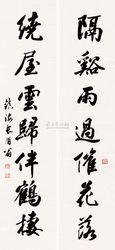 隔谿雨過催花落
繞屋雲歸伴鶴棲